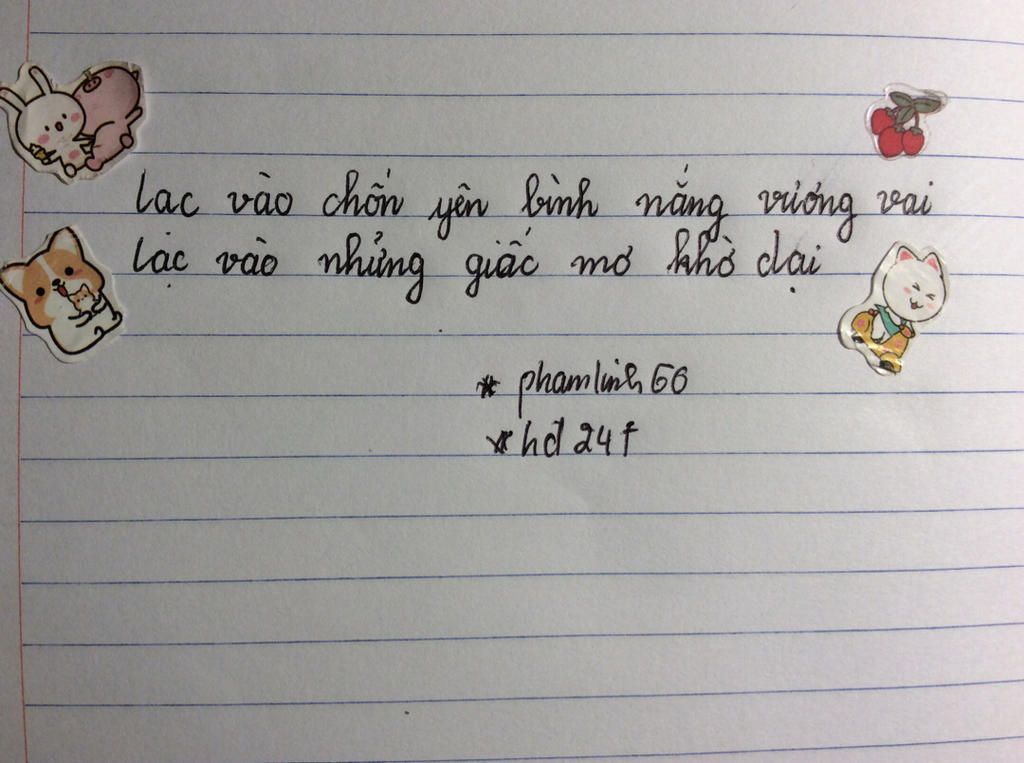 lac vào chốn yên bình nắng vướng vai
lạc vào những giấc mơ khờ dại
* phamlinh66
* hd 24f